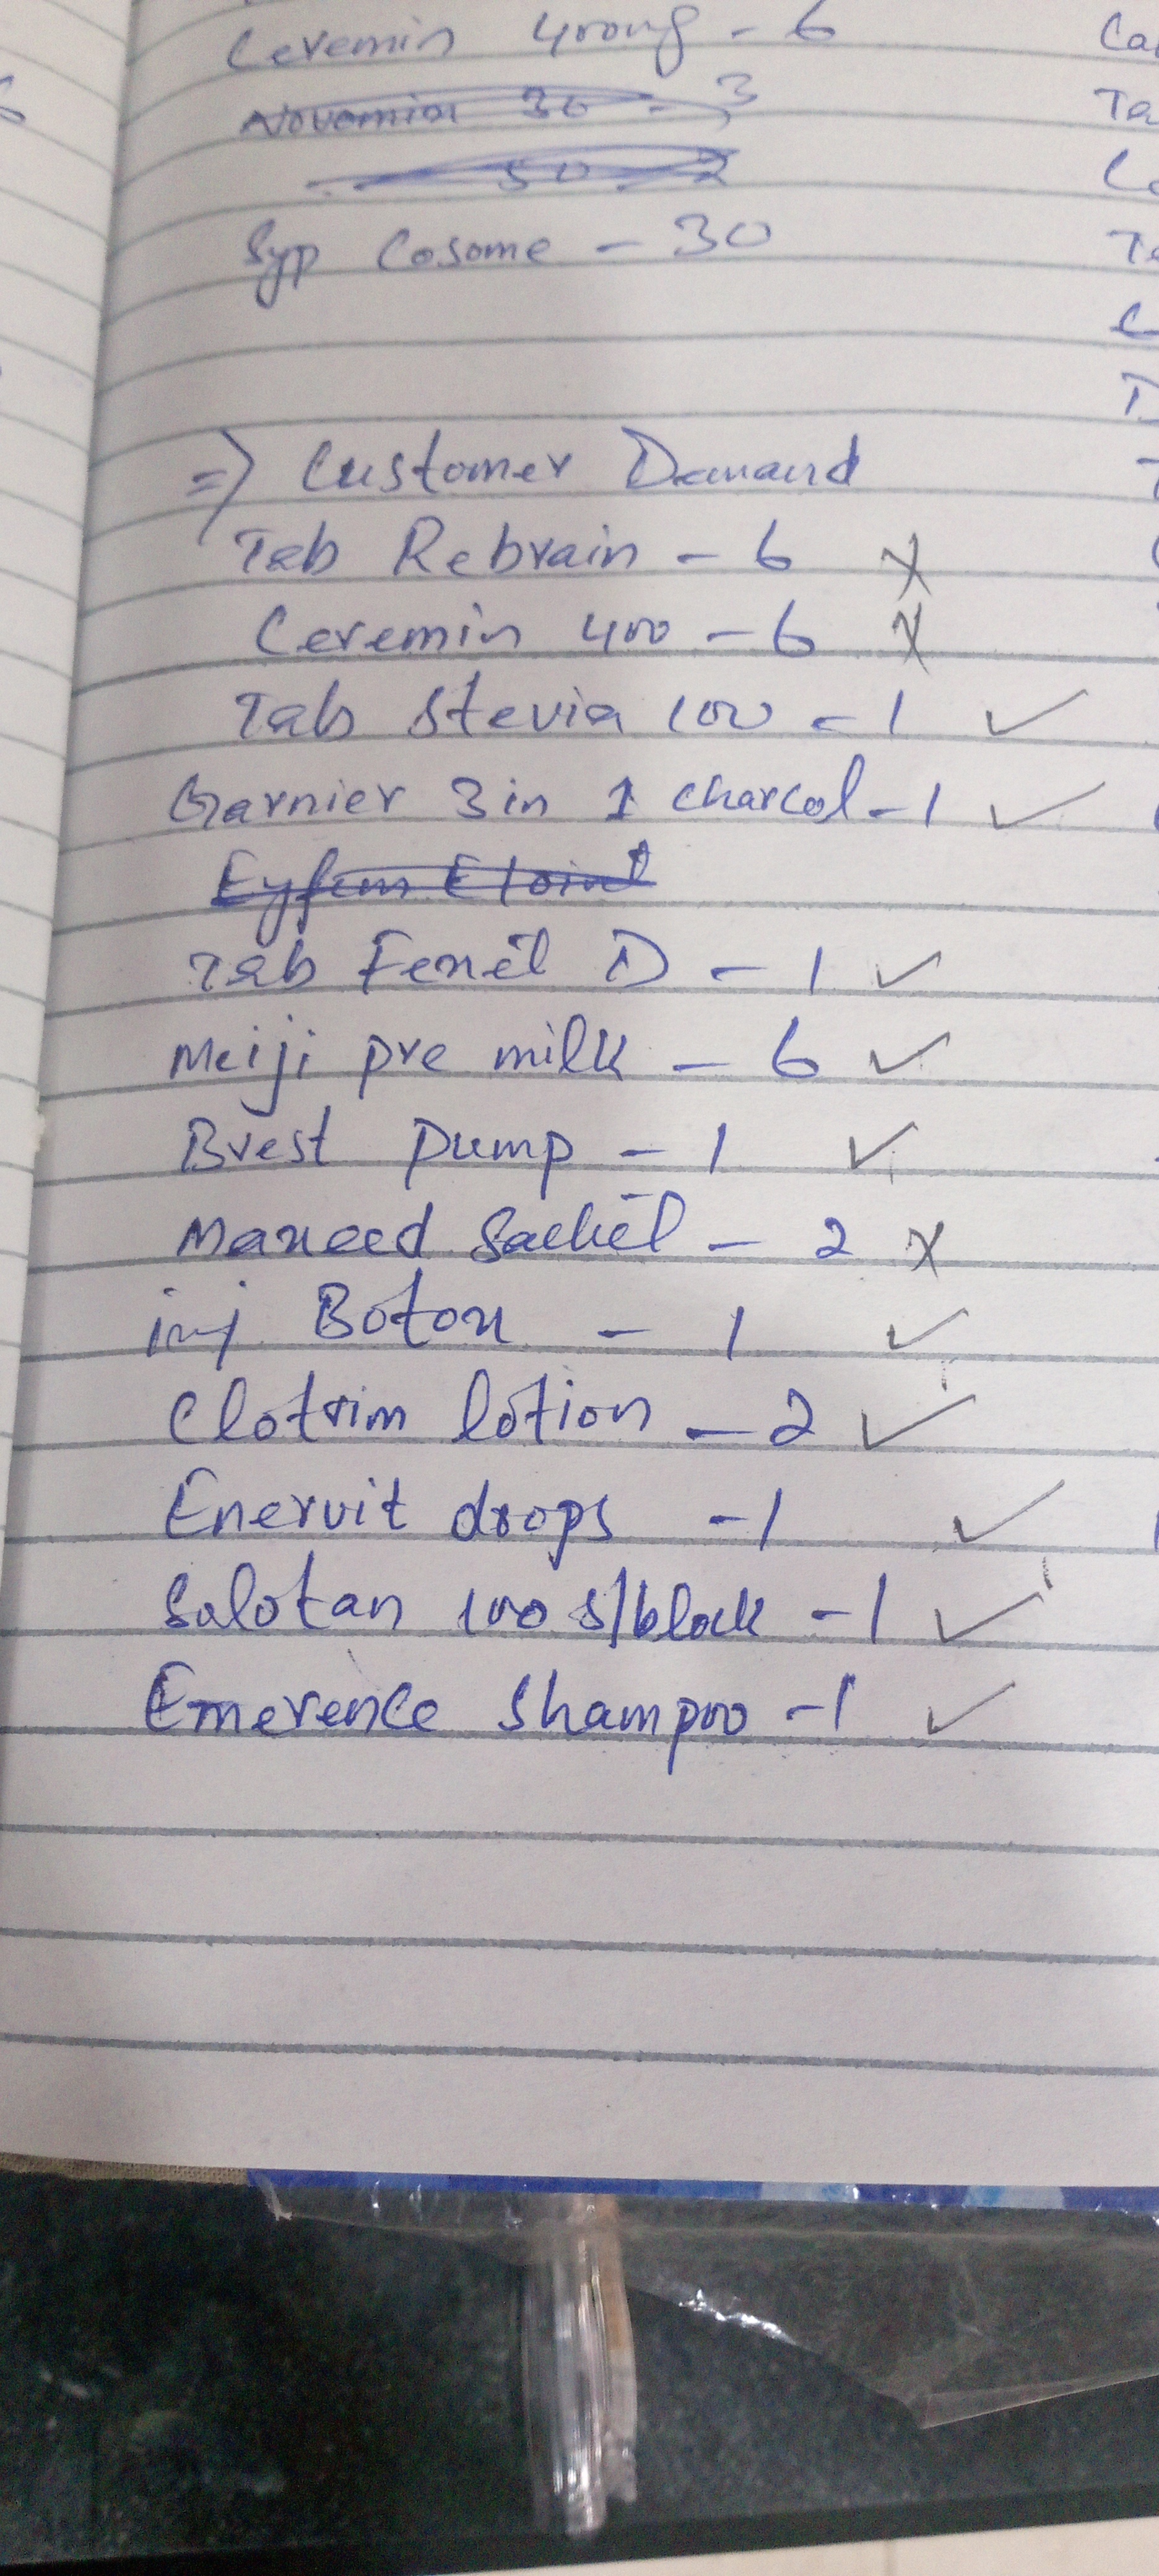 Ceremin 400mg - 6
Novomin 30 - 3
50 2
Syp Cosome - 30
=> Customer Demand
Tab Rebrain - 6 X
Ceremin 400 - 6 X
Tab Stevia 100 - 1 ✓
Garnier 3 in 1 charcol - 1 ✓
Tab Fexet D - 1 ✓
Meiji pre milk - 6 ✓
Brest Pump - 1 ✓
Maxeed Sachet - 2 X
inj Botox - 1 ✓
Clotrim lotion - 2 ✓
Enervit drops - 1 ✓
Salotan 100 s/block - 1 ✓
Emerence Shampoo - 1 ✓
Ca
Ta